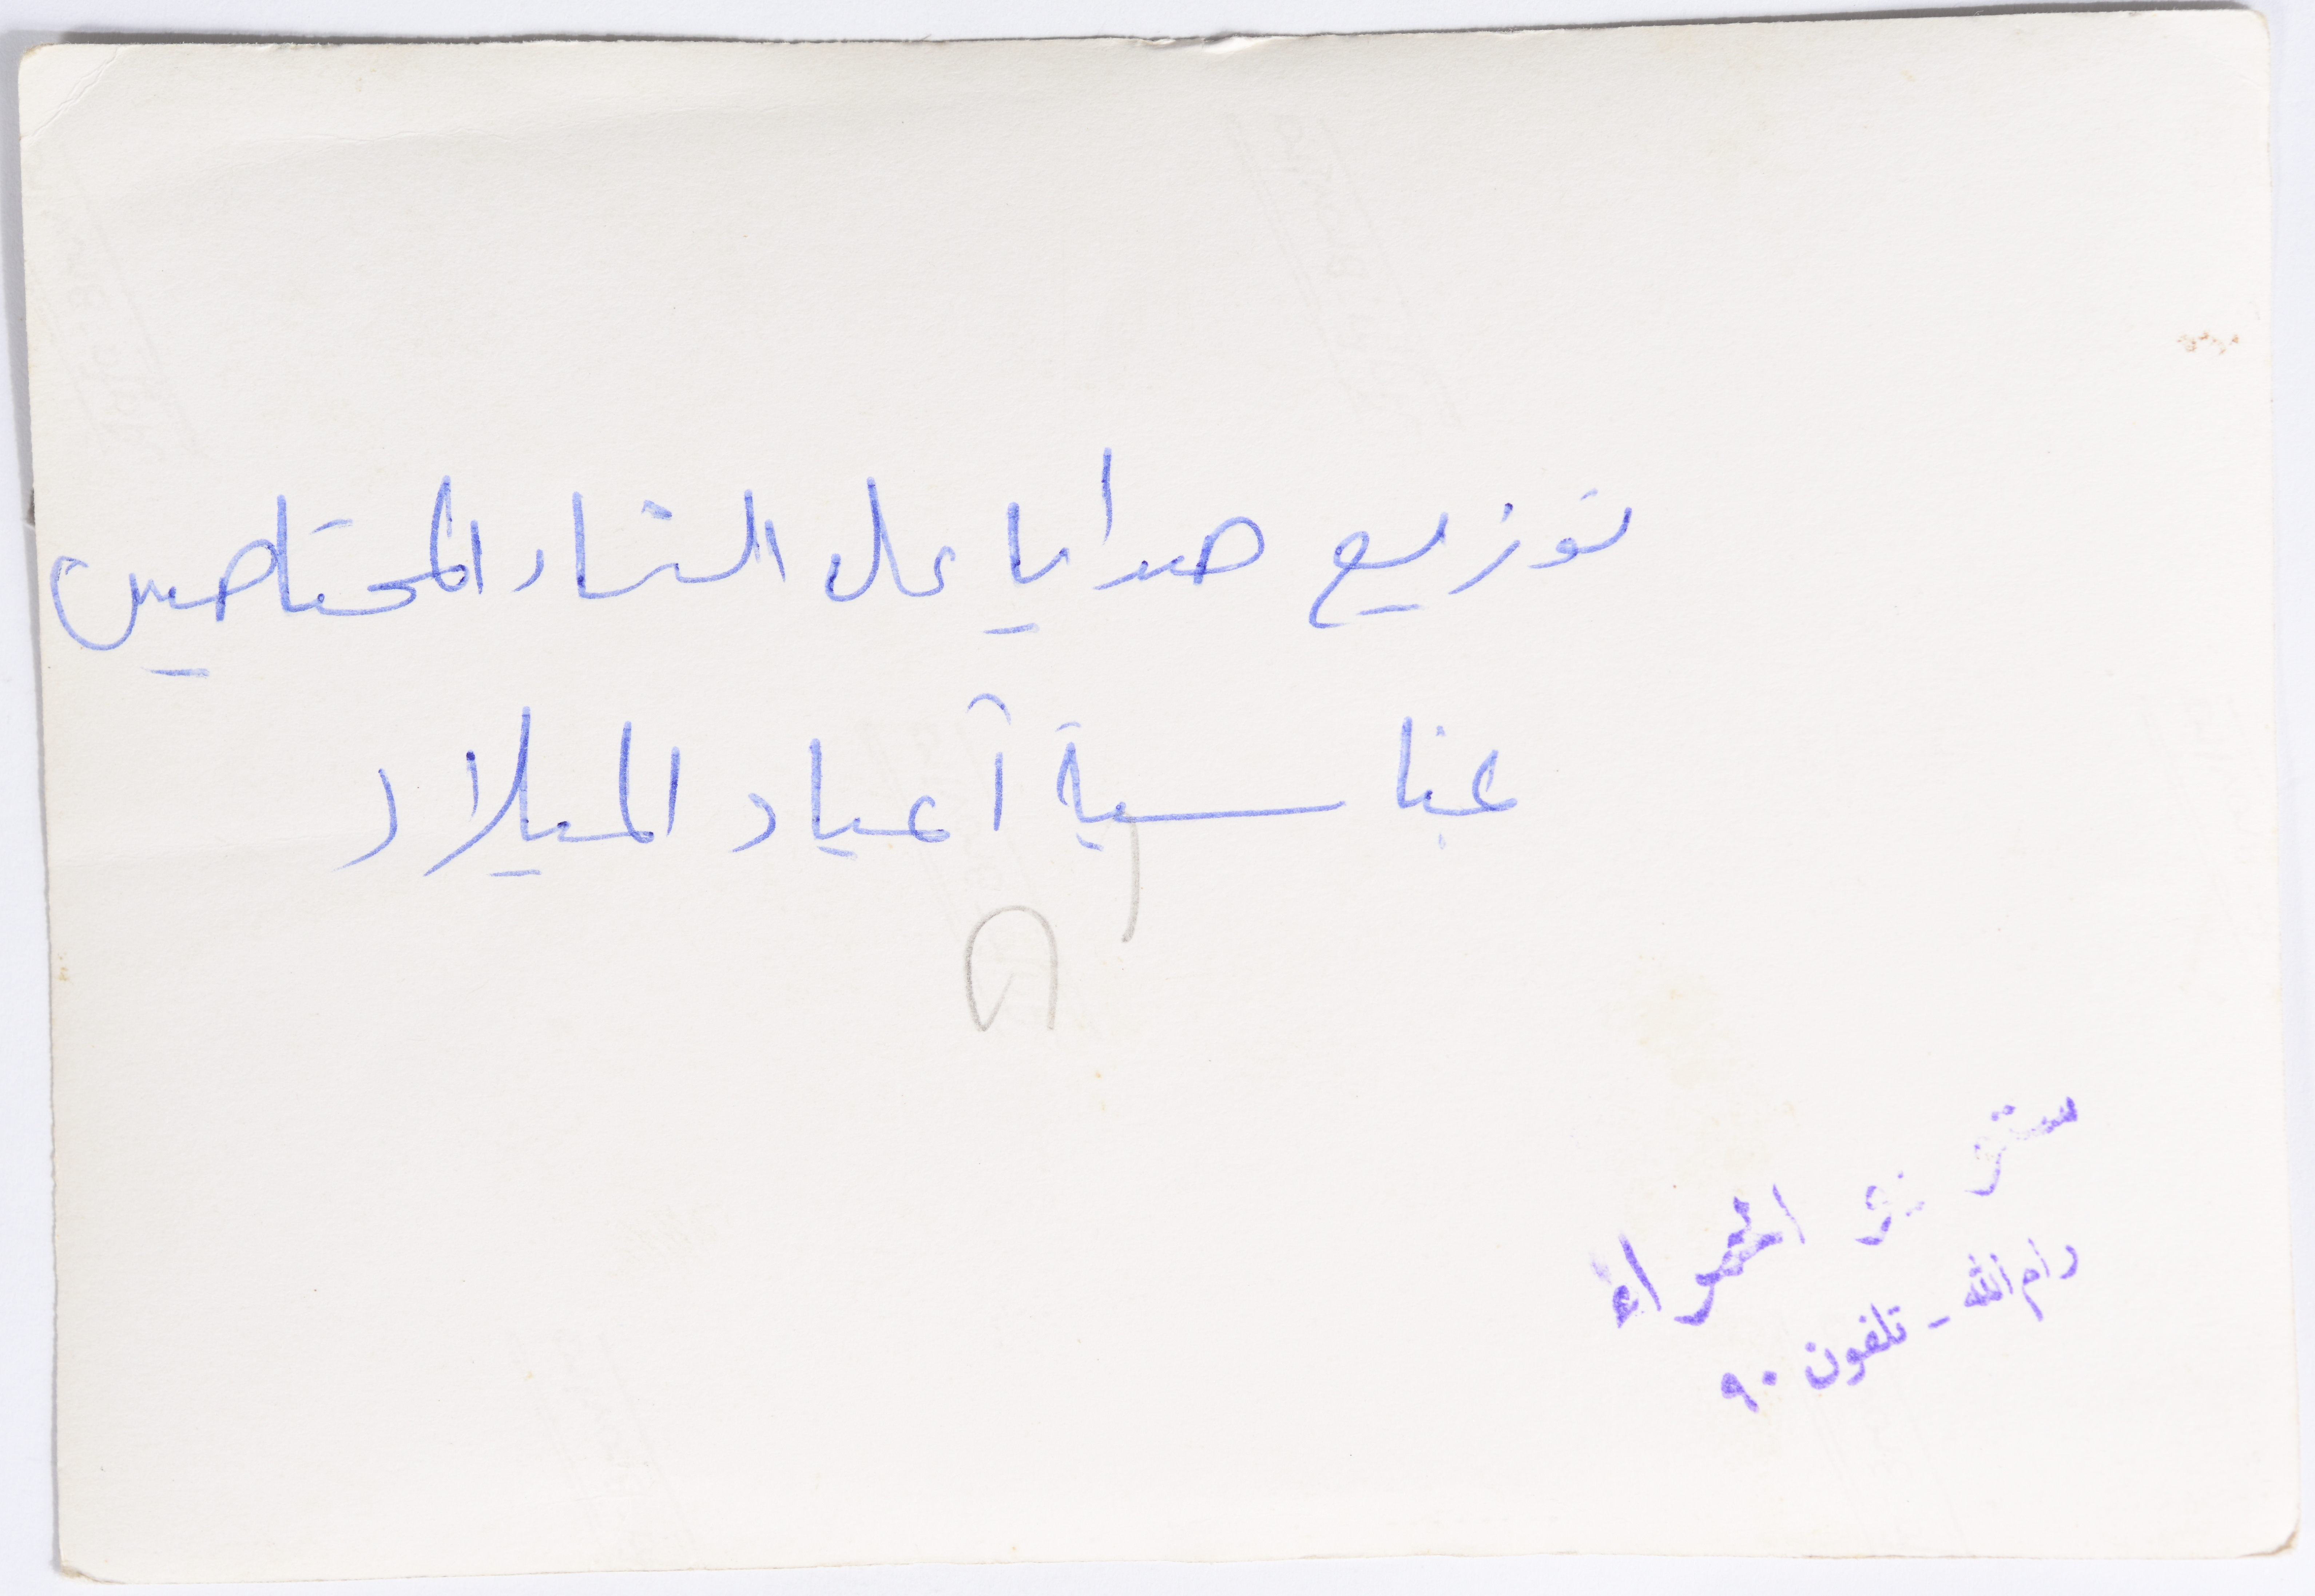 توزيع هدايا على النساء المحتاجين
بمناسبة أعياد الميلاد
ستوديو الحمراء
رام الله - تلفون ٩٠